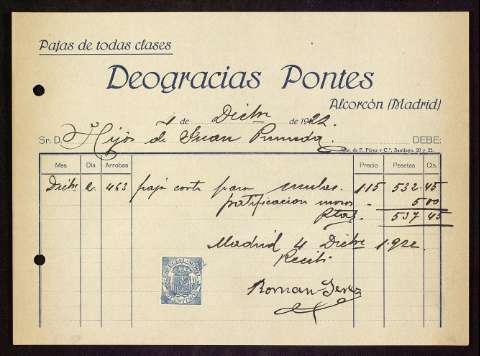 Pajas de todas clases
Deogracias Pontes
Alcorcón (Madrid)
4 de Dicbre de 1922
Sr. D. Hijos de Juan DEBE:
Mes Día Arrobas Precio Pesetas Cts.
Dicbre 2 463 paja corta para mulas. 115 532 45
gratificacion mozos 5 00
Ptas 537 45
Madrid 4 Dicbre 1922
Recibi
Roman